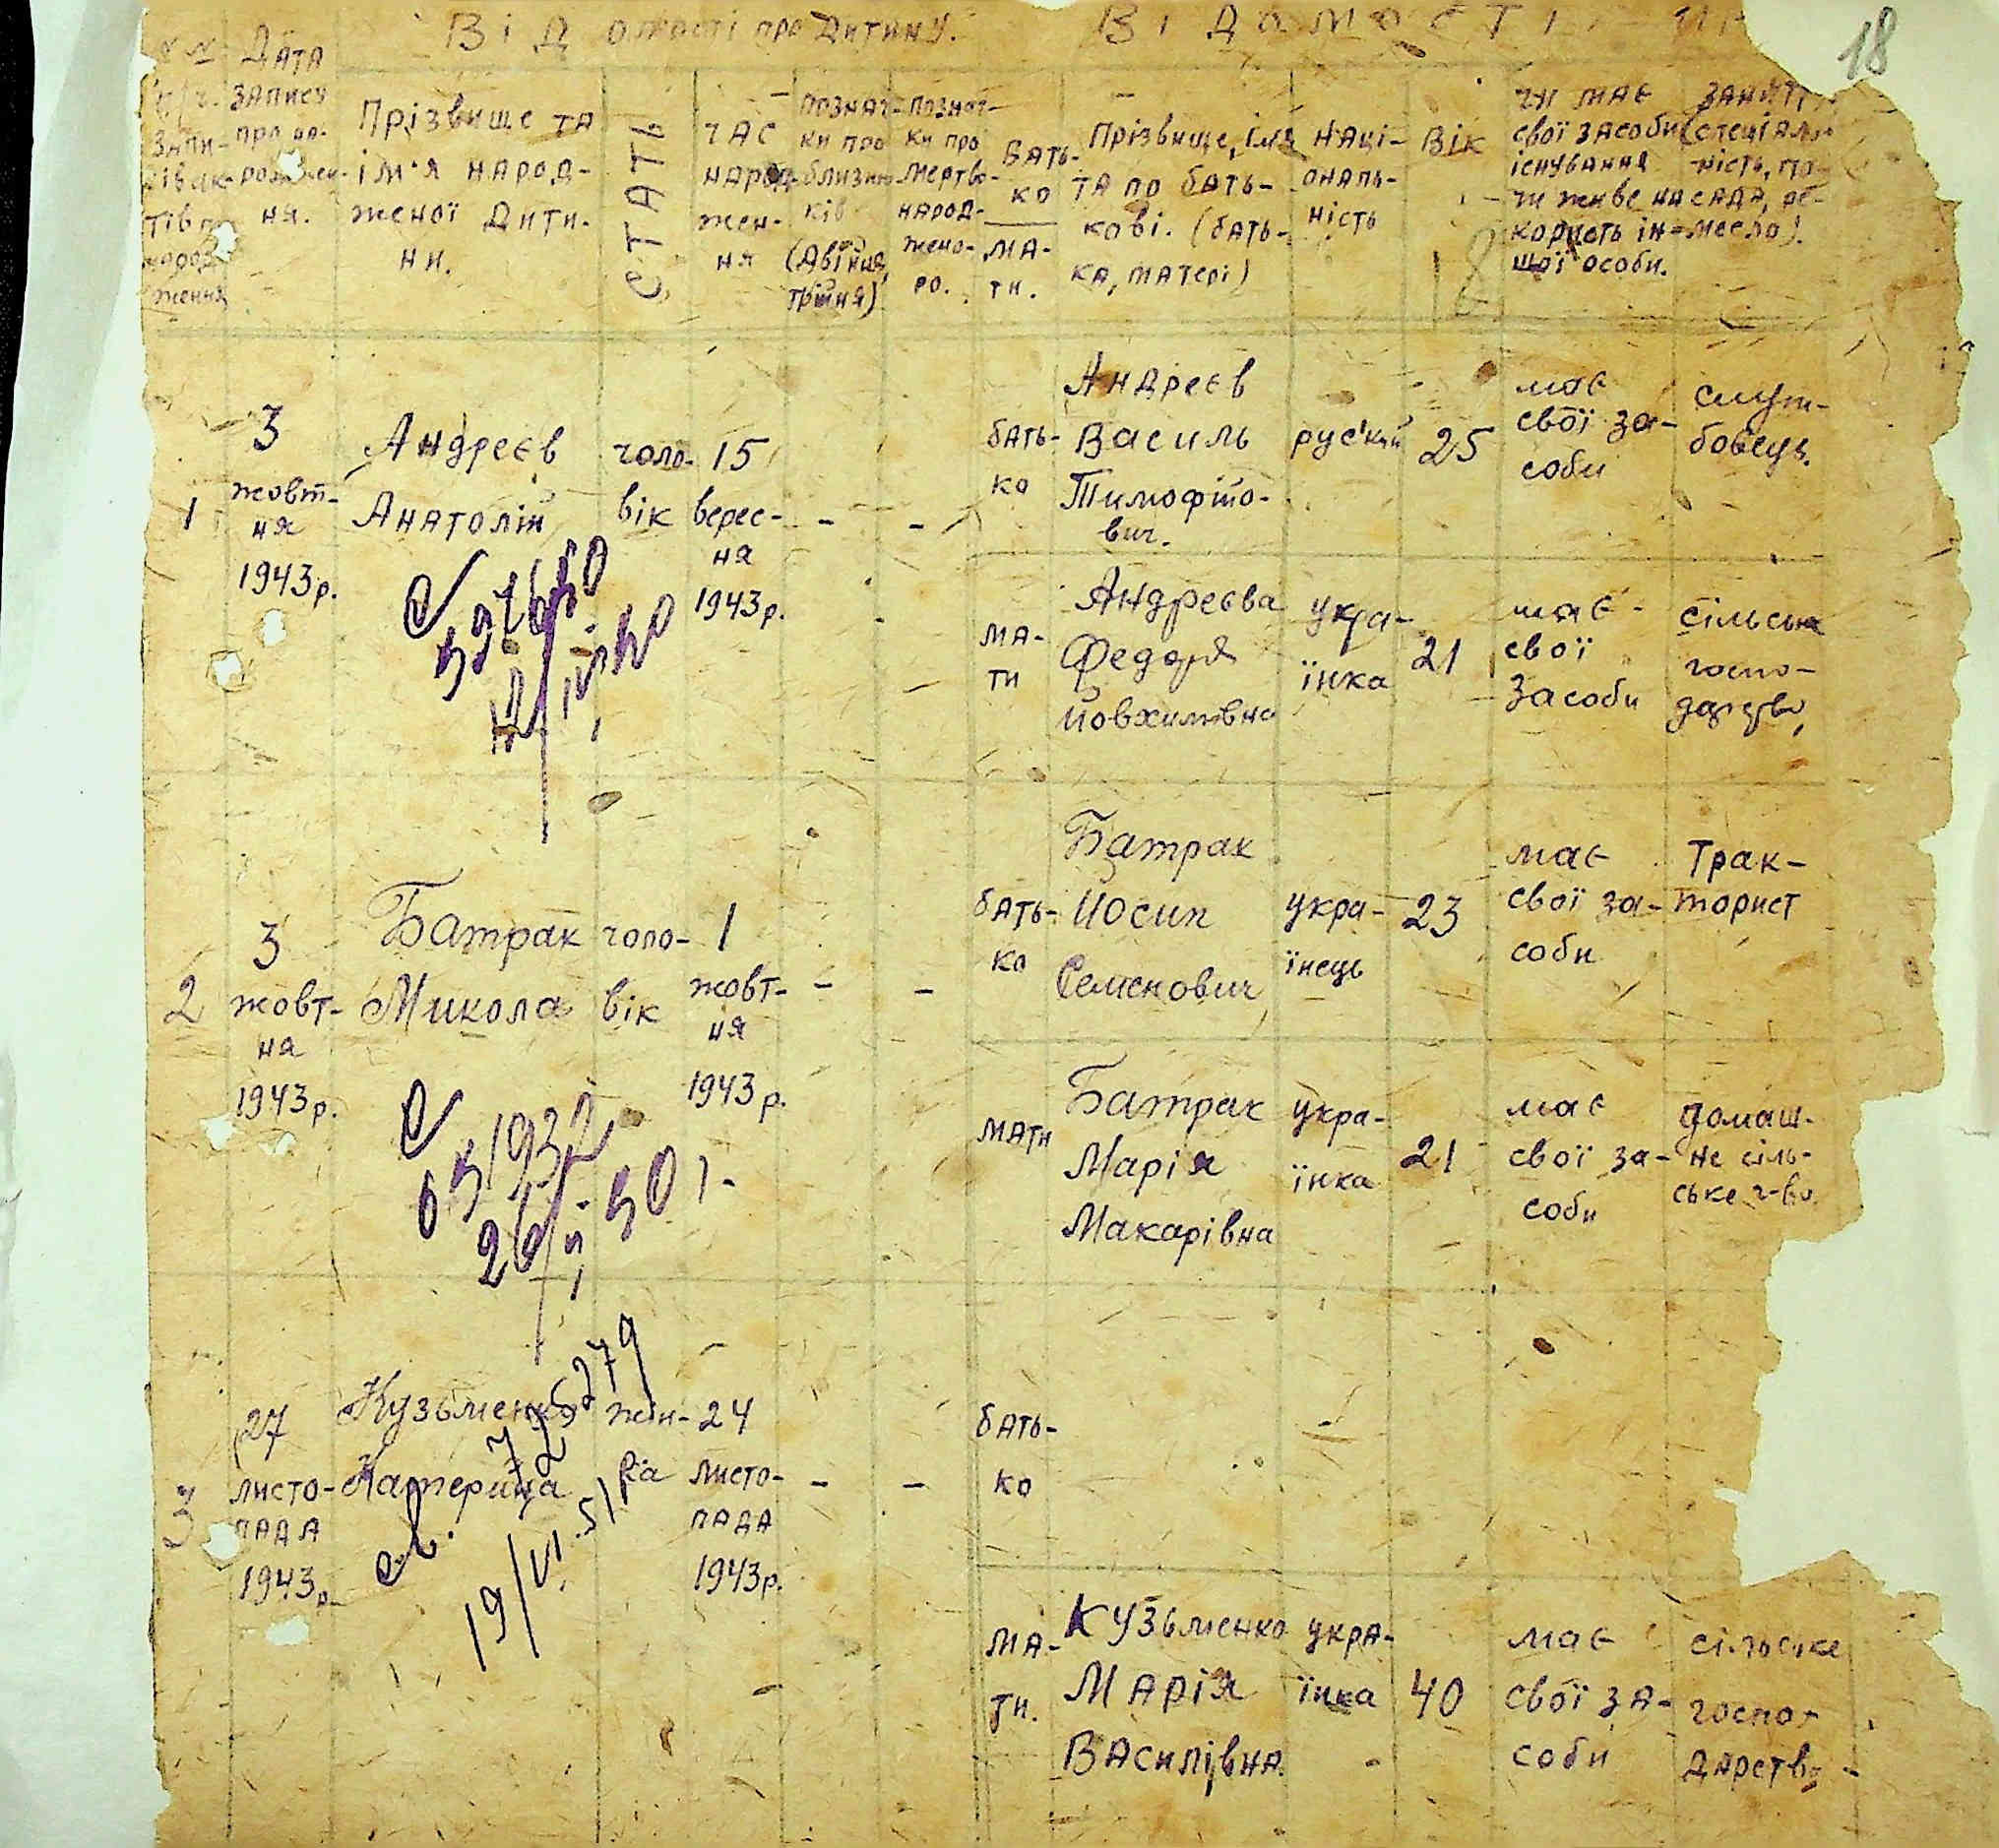 Відомості про дитину.
Відомості
18
Дата запису про народження.
Прізвище та
ім'я народ-
женої дити-
ни.
СТАТЬ
час
народ-
жен-
ня
познач-
ки про
близню-
ків
(двійня,
трійня)
познач-
ки про
мертво-
народ-
жено-
го.
Бать-
ко
ма-
ти.
Прізвище, ім'я
та по бать-
кові. (бать-
ка, матері)
Наці-
ональ-
ність
Вік
чи має
свої засоби
існування
чи живе на
користь ін-
шої особи.
18
1
3
жовт-
ня
1943р.
Андреєв
Анатолій
чоло-
вік
15
верес-
ня
1943р.
-
-
бать-
ко
Андреєв
Василь
Тимофійо-
вич.
25
має
свої за-
соби
служ-
бовець.
ма-
ти
Андреєва
Йовхимівна
укра-
їнка
21
має
свої
засоби
госпо-
2
3
жовт-
ня
1943р.
Батрак
Микола
чоло-
вік
1
жовт-
ня
1943р.
-
-
бать-
ко
Батрак
Йосип
Семенович
укра-
їнець
23
має
свої за-
соби
трак-
торист
мати
Батрак
Марія
Макарівна
укра-
їнка
21
має
свої за-
соби
домаш-
нє сіль-
ське г-во
3
27
листо-
пада
1943р.
Кузьменко
Катерина
жін-
ка
24
листо-
пада
1943р.
-
-
19/VI.51р
бать-
ко
ма-
ти.
Кузьменко
Марія
Василівна.
укра-
їнка
40
має
свої за-
соби
сільське
госпо-
дарство